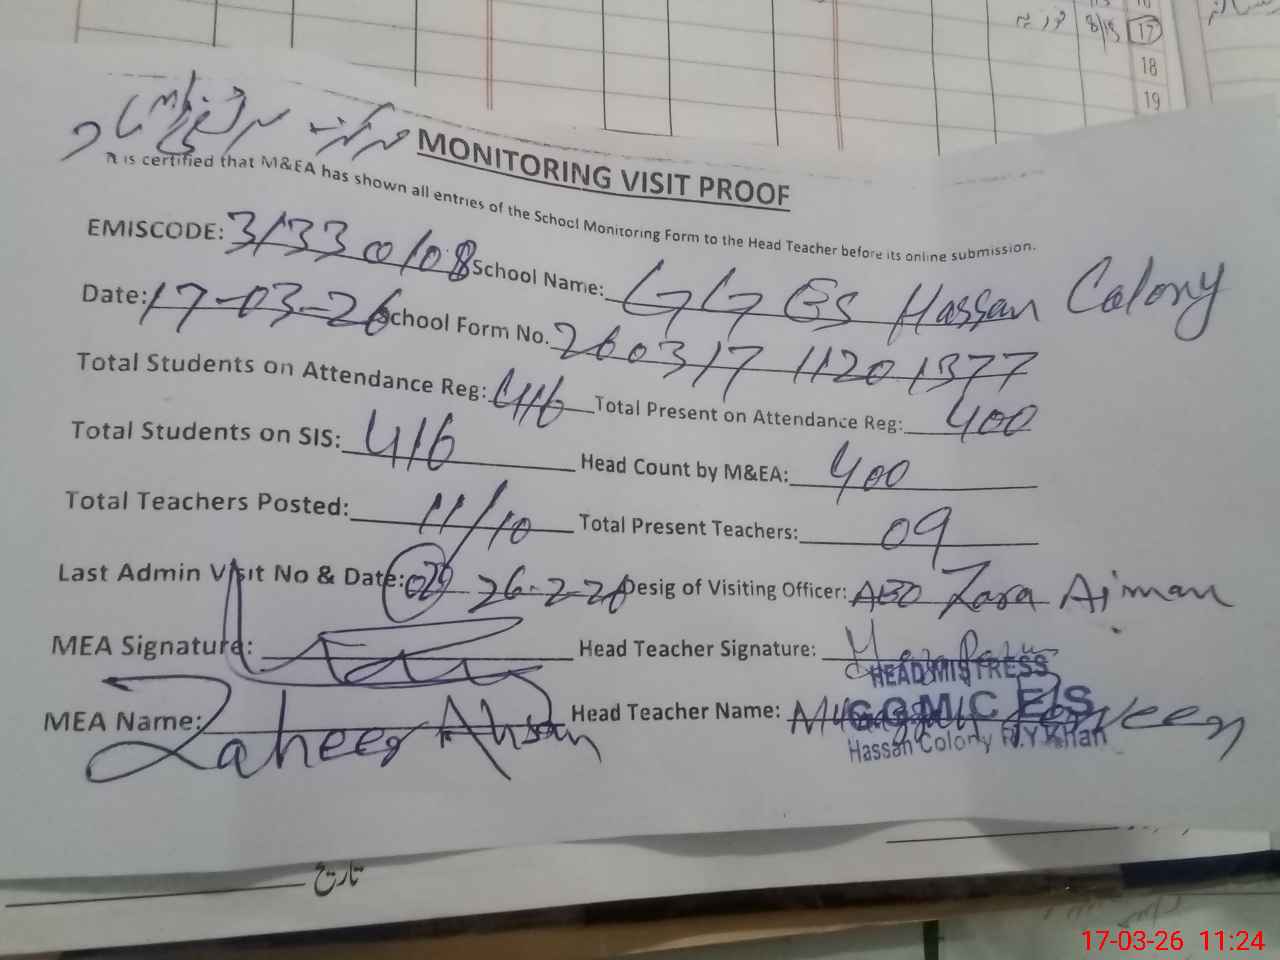 8/15 17
18
19
MONITORING VISIT PROOF
It is certified that M&EA has shown all entries of the School Monitoring Form to the Head Teacher before its online submission.
EMISCODE: 31330108 School Name: GGES Hassan Colony
Date: 17-03-26 School Form No. 260317 11201377
Total Students on Attendance Reg: 416 Total Present on Attendance Reg: 400
Total Students on SIS: 416 Head Count by M&EA: 400
Total Teachers Posted: 11/10 Total Present Teachers: 09
Last Admin Visit No & Date: 26-2-26 Desig of Visiting Officer: AEO Zara Aiman
MEA Signature: Head Teacher Signature:
HEADMISTRESS
MEA Name: Zaheer Ahsan Head Teacher Name: Parveen
G.G.M/C E/S
Hassan Colony R.Y.Khan
تاریخ
17-03-26 11:24